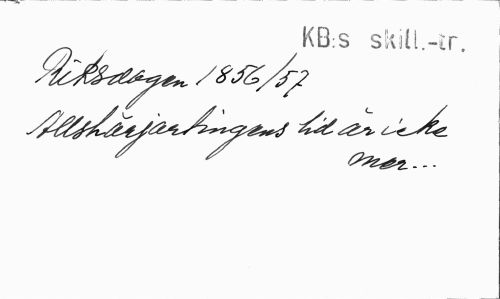 KB:s skill.-tr.
Riksdagen 1856/57
Allshärjartingens tid är icke
mer...